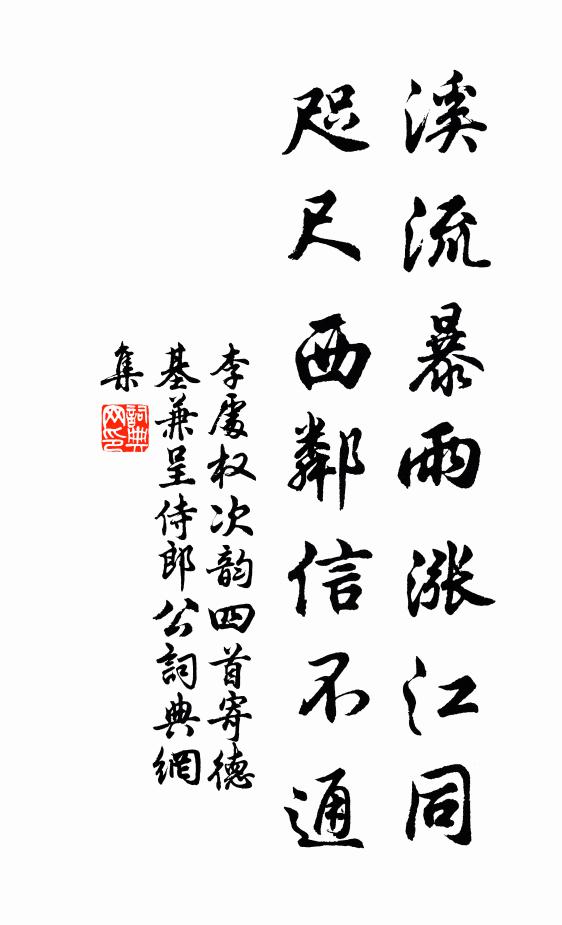 溪流暴雨漲江同
咫尺西鄰信不通
李處权次韵四首寄德
基兼呈侍郎公詞典網
集
詞典
网印